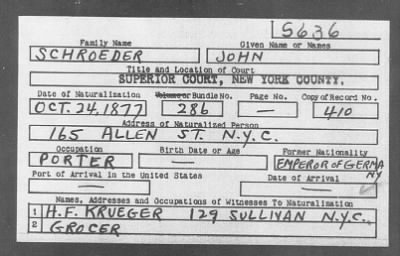 S636
Family Name Given Name or Names
SCHROEDER JOHN
Title and Location of Court
SUPERIOR COURT, NEW YORK COUNTY.
Date of Naturalization Volume or Bundle No. Page No. Copy of Record No.
OCT. 24, 1877 286 — 410
Address of Naturalized Person
165 ALLEN ST. N.Y.C.
Occupation Birth Date or Age Former Nationality
PORTER — EMPEROR OF GERMANY
Port of Arrival in the United States Date of Arrival
— —
Names, Addresses and Occupations of Witnesses To Naturalization
1 H.F. KRUEGER 129 SULLIVAN N.Y.C.
2 GROCER